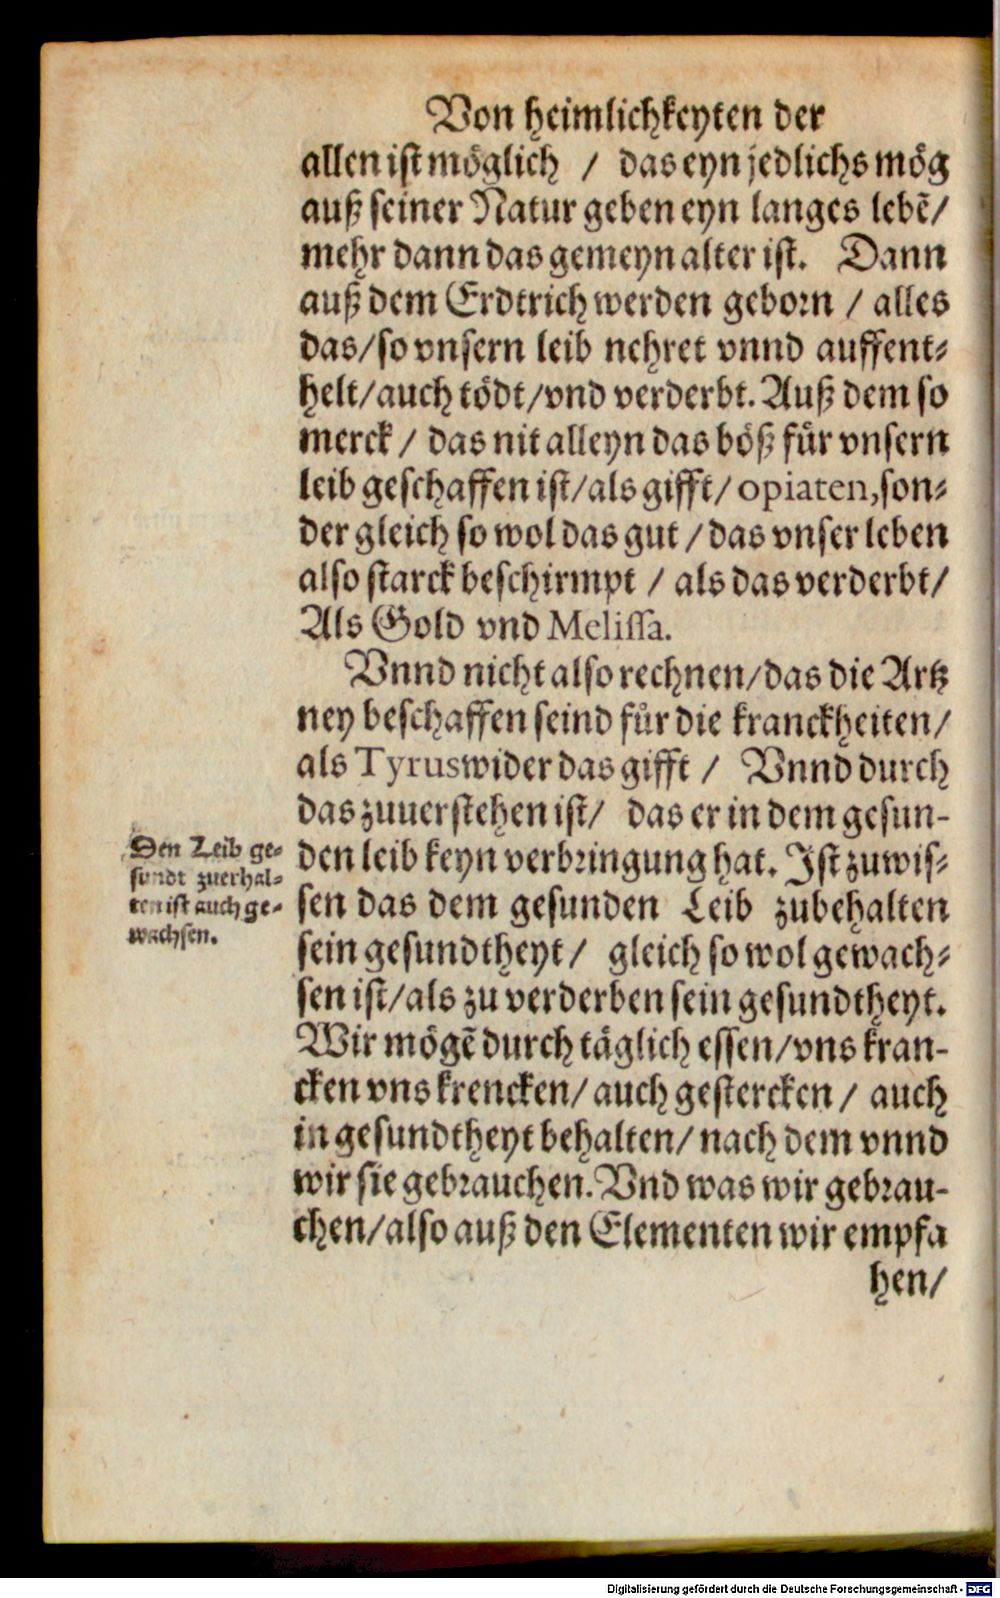 Von heimlichkeyten der
allen ist möglich / das eyn jedlichs mög
auß seiner Natur geben eyn langes lebē/
mehr dann das gemeyn alter ist. Dann
auß dem Erdtrich werden geborn / alles
das/so vnsern leib nehret vnnd auffent-
helt/auch tödt/vnd verderbt. Auß dem so
merck / das nit alleyn das böß für vnsern
leib geschaffen ist/als gifft/ opiaten, son-
der gleich so wol das gut / das vnser leben
also starck beschirmpt / als das verderbt/
Als Gold vnd Melissa.
Vnnd nicht also rechnen/das die Artz
ney beschaffen seind für die kranckheiten/
als Tyrus wider das gifft / Vnnd durch
das zuuerstehen ist/ das er in dem gesun-
den leib keyn verbringung hat. Ist zuwis-
sen das dem gesunden Leib zubehalten
sein gesundtheyt / gleich so wol gewach-
sen ist/als zu verderben sein gesundtheyt.
Wir mögē durch täglich essen/vns kran-
cken vns krencken/ auch gestercken / auch
in gesundtheyt behalten/ nach dem vnnd
wir sie gebrauchen. Vnd was wir gebrau-
chen/also auß den Elementen wir empfa
hen/
Den Leib ge-
sundt zuerhal-
ten ist auch ge-
wachsen.
Digitalisierung gefördert durch die Deutsche Forschungsgemeinschaft - DFG